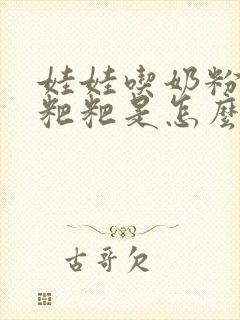 娃娃喫奶粉
粑粑是怎麼
古哥欠